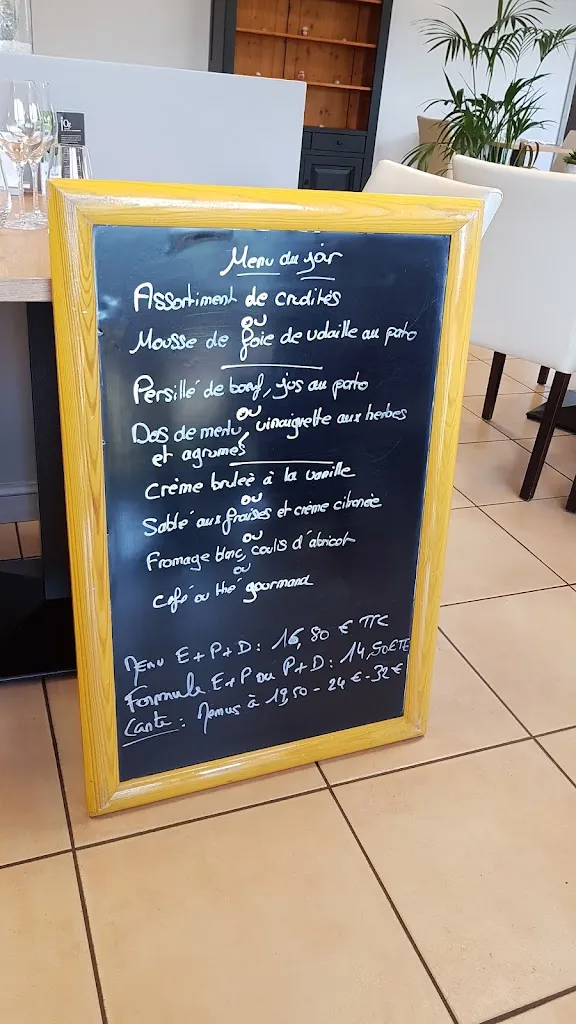 Menu du jour
Assortiment de crudités
ou
Mousse de foie de volaille au porto
Persillé de boeuf, jus au porto
ou
Dos de merlu, vinaigrette aux herbes
et agrumes
Crème brulée à la vanille
ou
Sablé aux fraises et crème citronée
ou
Fromage blanc, coulis d'abricot
ou
Café ou thé gourmand
Menu E + P + D : 16,80 € TTC
Formule E + P ou P + D : 14,50 € TTC
Carte : Menus à 19,50 - 24 € - 32 €